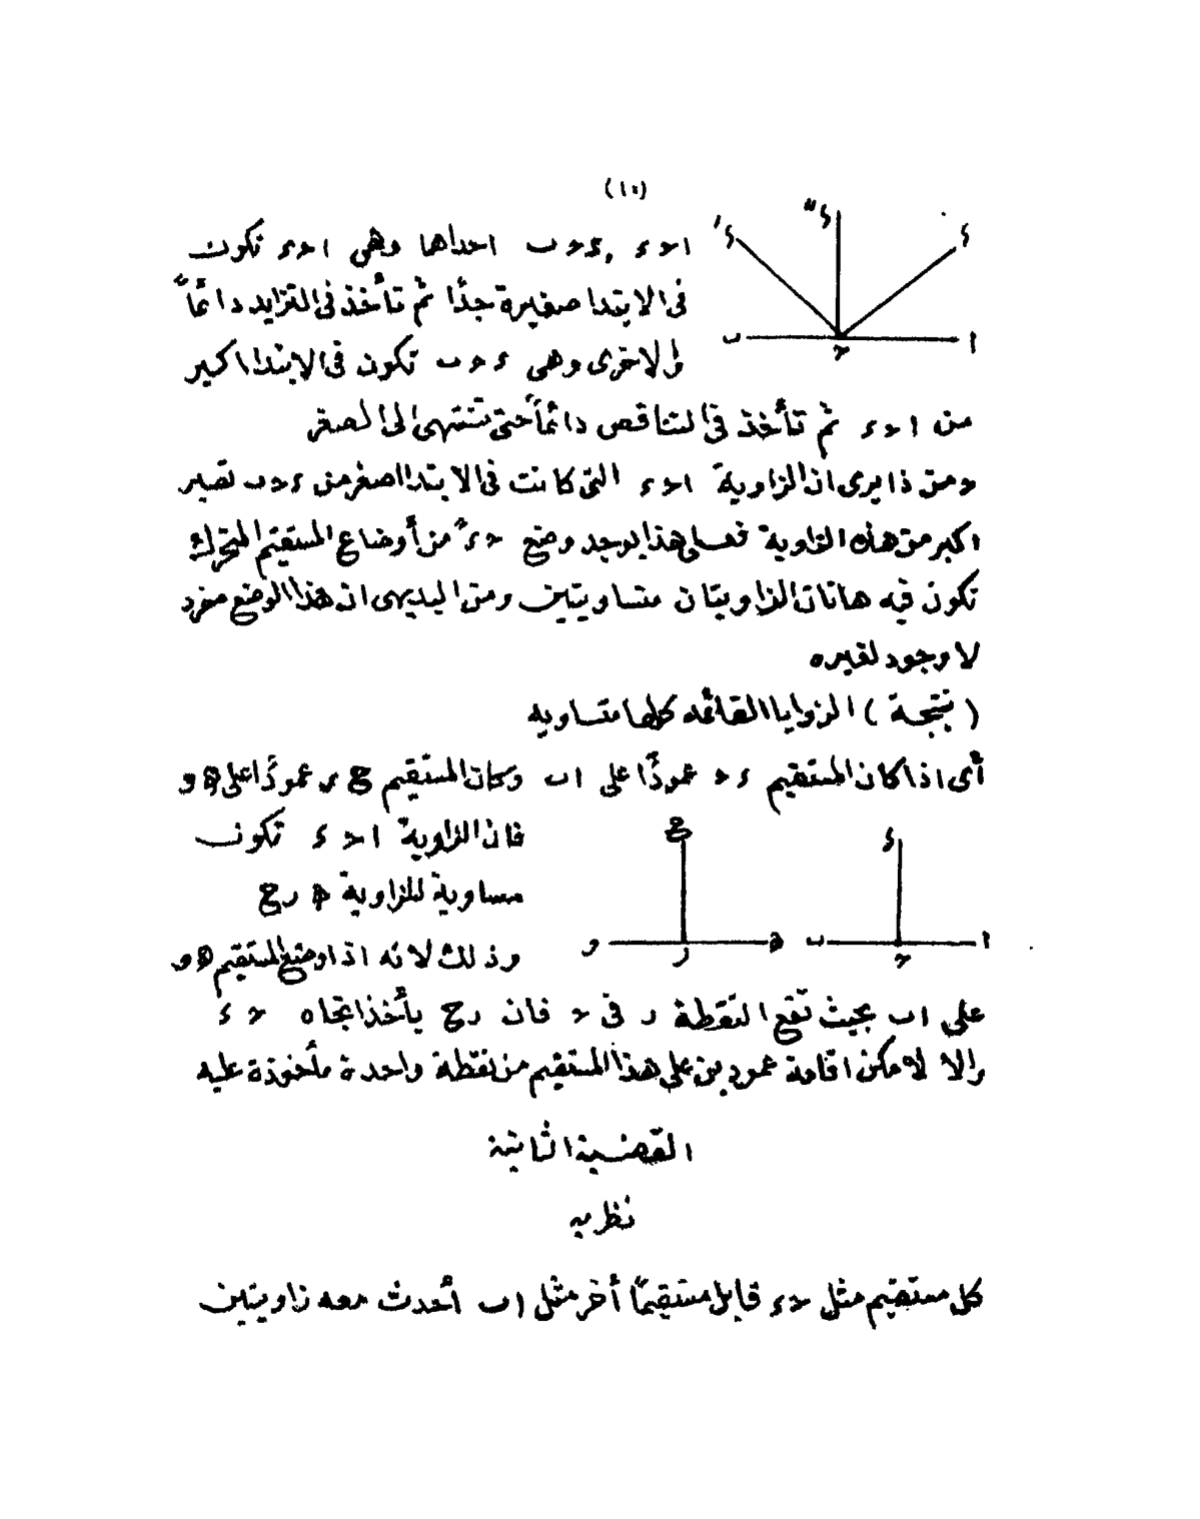 (١٥)
ا ح ء , ء ح ب احداها وهى ا ح ء تكون
فى الابتدا صغيرة جدًا ثم تأخذ فى التزايد دائمًا
والاخرى وهى ء ح ب تكون فى الابتدا اكبر
من ا ح ء ثم تأخذ فى التناقص دائمًا حتى تنتهى الى الصفر
ومن ذا يرى ان الزاوية ا ح ء التى كانت فى الابتدا اصغر من ء ح ب تصير
اكبر من هذه الزاوية فعلى هذا يوجد وضع ح ءً من أوضاع المستقيم المتحرك
تكون فيه هاتان الزاويتان متساويتين ومن البديهى ان هذا الوضع مفرد
لا وجود لغيره
(نتيجة) الزوايا القائمه كلها متساويه
أى اذا كان المستقيم ء ح عمودًا على ا ب وكان المستقيم ح ر عمودًا على ه و
فان الزاوية ا ح ء تكون
مساوية للزاوية ه ر ح
وذلك لانه اذا وضع المستقيم ه و
على ا ب بحيث تقع النقطة ر فى ح فان ر ح يأخذ اتجاه ح ء
والا لامكن اقامة عمودين على هذا المستقيم من نقطة واحدة مأخوذة عليه
القضية الثانية
نظريه
كل مستقيم مثل ح ء قابل مستقيمًا أخر مثل ا ب أحدث معه زاويتين